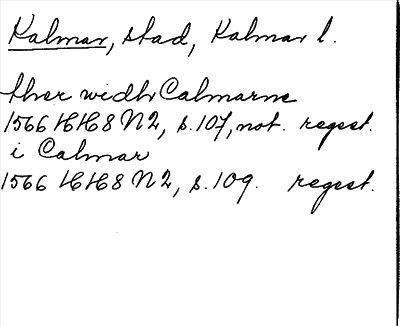 Kalmar, stad, Kalmar l.
ther widh Calmarne
1566 HH8 N2, s.107, not. regest.
i Calmar
1566 HH8 N2, s.109. regest.